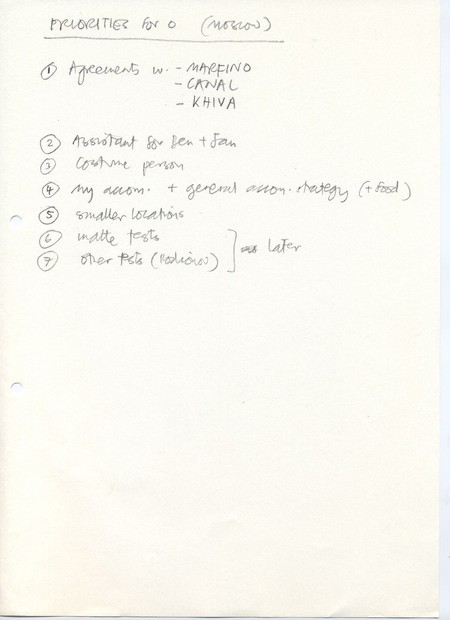 PRIORITIES for O (MOSCOW)
① Agreements w. - MARFINO
- CANAL
- KHIVA
② Assistant for Ben + Jan
③ Costume person
④ my accom. + general accom. strategy (+ food)
⑤ smaller locations
⑥ matte tests
⑦ other tests (Rodionov) later